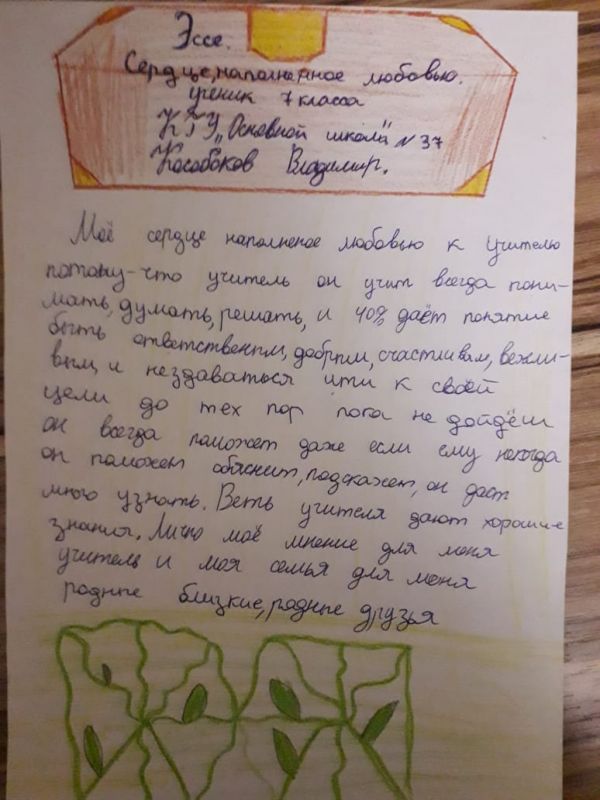 Эссе.
Сердце, наполненное любовью.
ученик 7 класса
КГУ „Основной школа" №37
Кособоков Владимир.
Моё сердце наполненое любовью к учителю
потому-что учитель он учит всегда пони-
мать, думать, решать, и 40% даёт понятие
быть ответственным, добрым, счастливым, вежли-
вым, и нездаваться ити к своей
цели до тех пор пога не дойдёш
он всегда поможет даже если ему некогда
он поможет обяснит, подскажет, он даст
много узнать. Веть учителя дают хорошие
знания. Лично моё мнение для меня
учитель и моя семья для меня
родные близкие, родные друзья